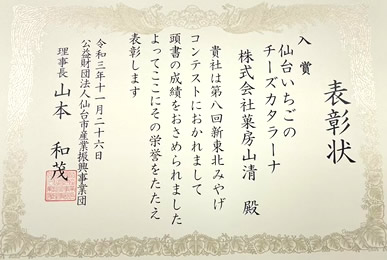 表彰状
入賞
仙台いちごの
チーズカタラーナ
株式会社菓房山清 殿
貴社は第八回新東北みやげ
コンテストにおかれまして
頭書の成績をおさめられました
よってここにその栄誉をたたえ
表彰します
令和三年十一月二十六日
公益財団法人仙台市産業振興事業団
理事長 山本 和茂